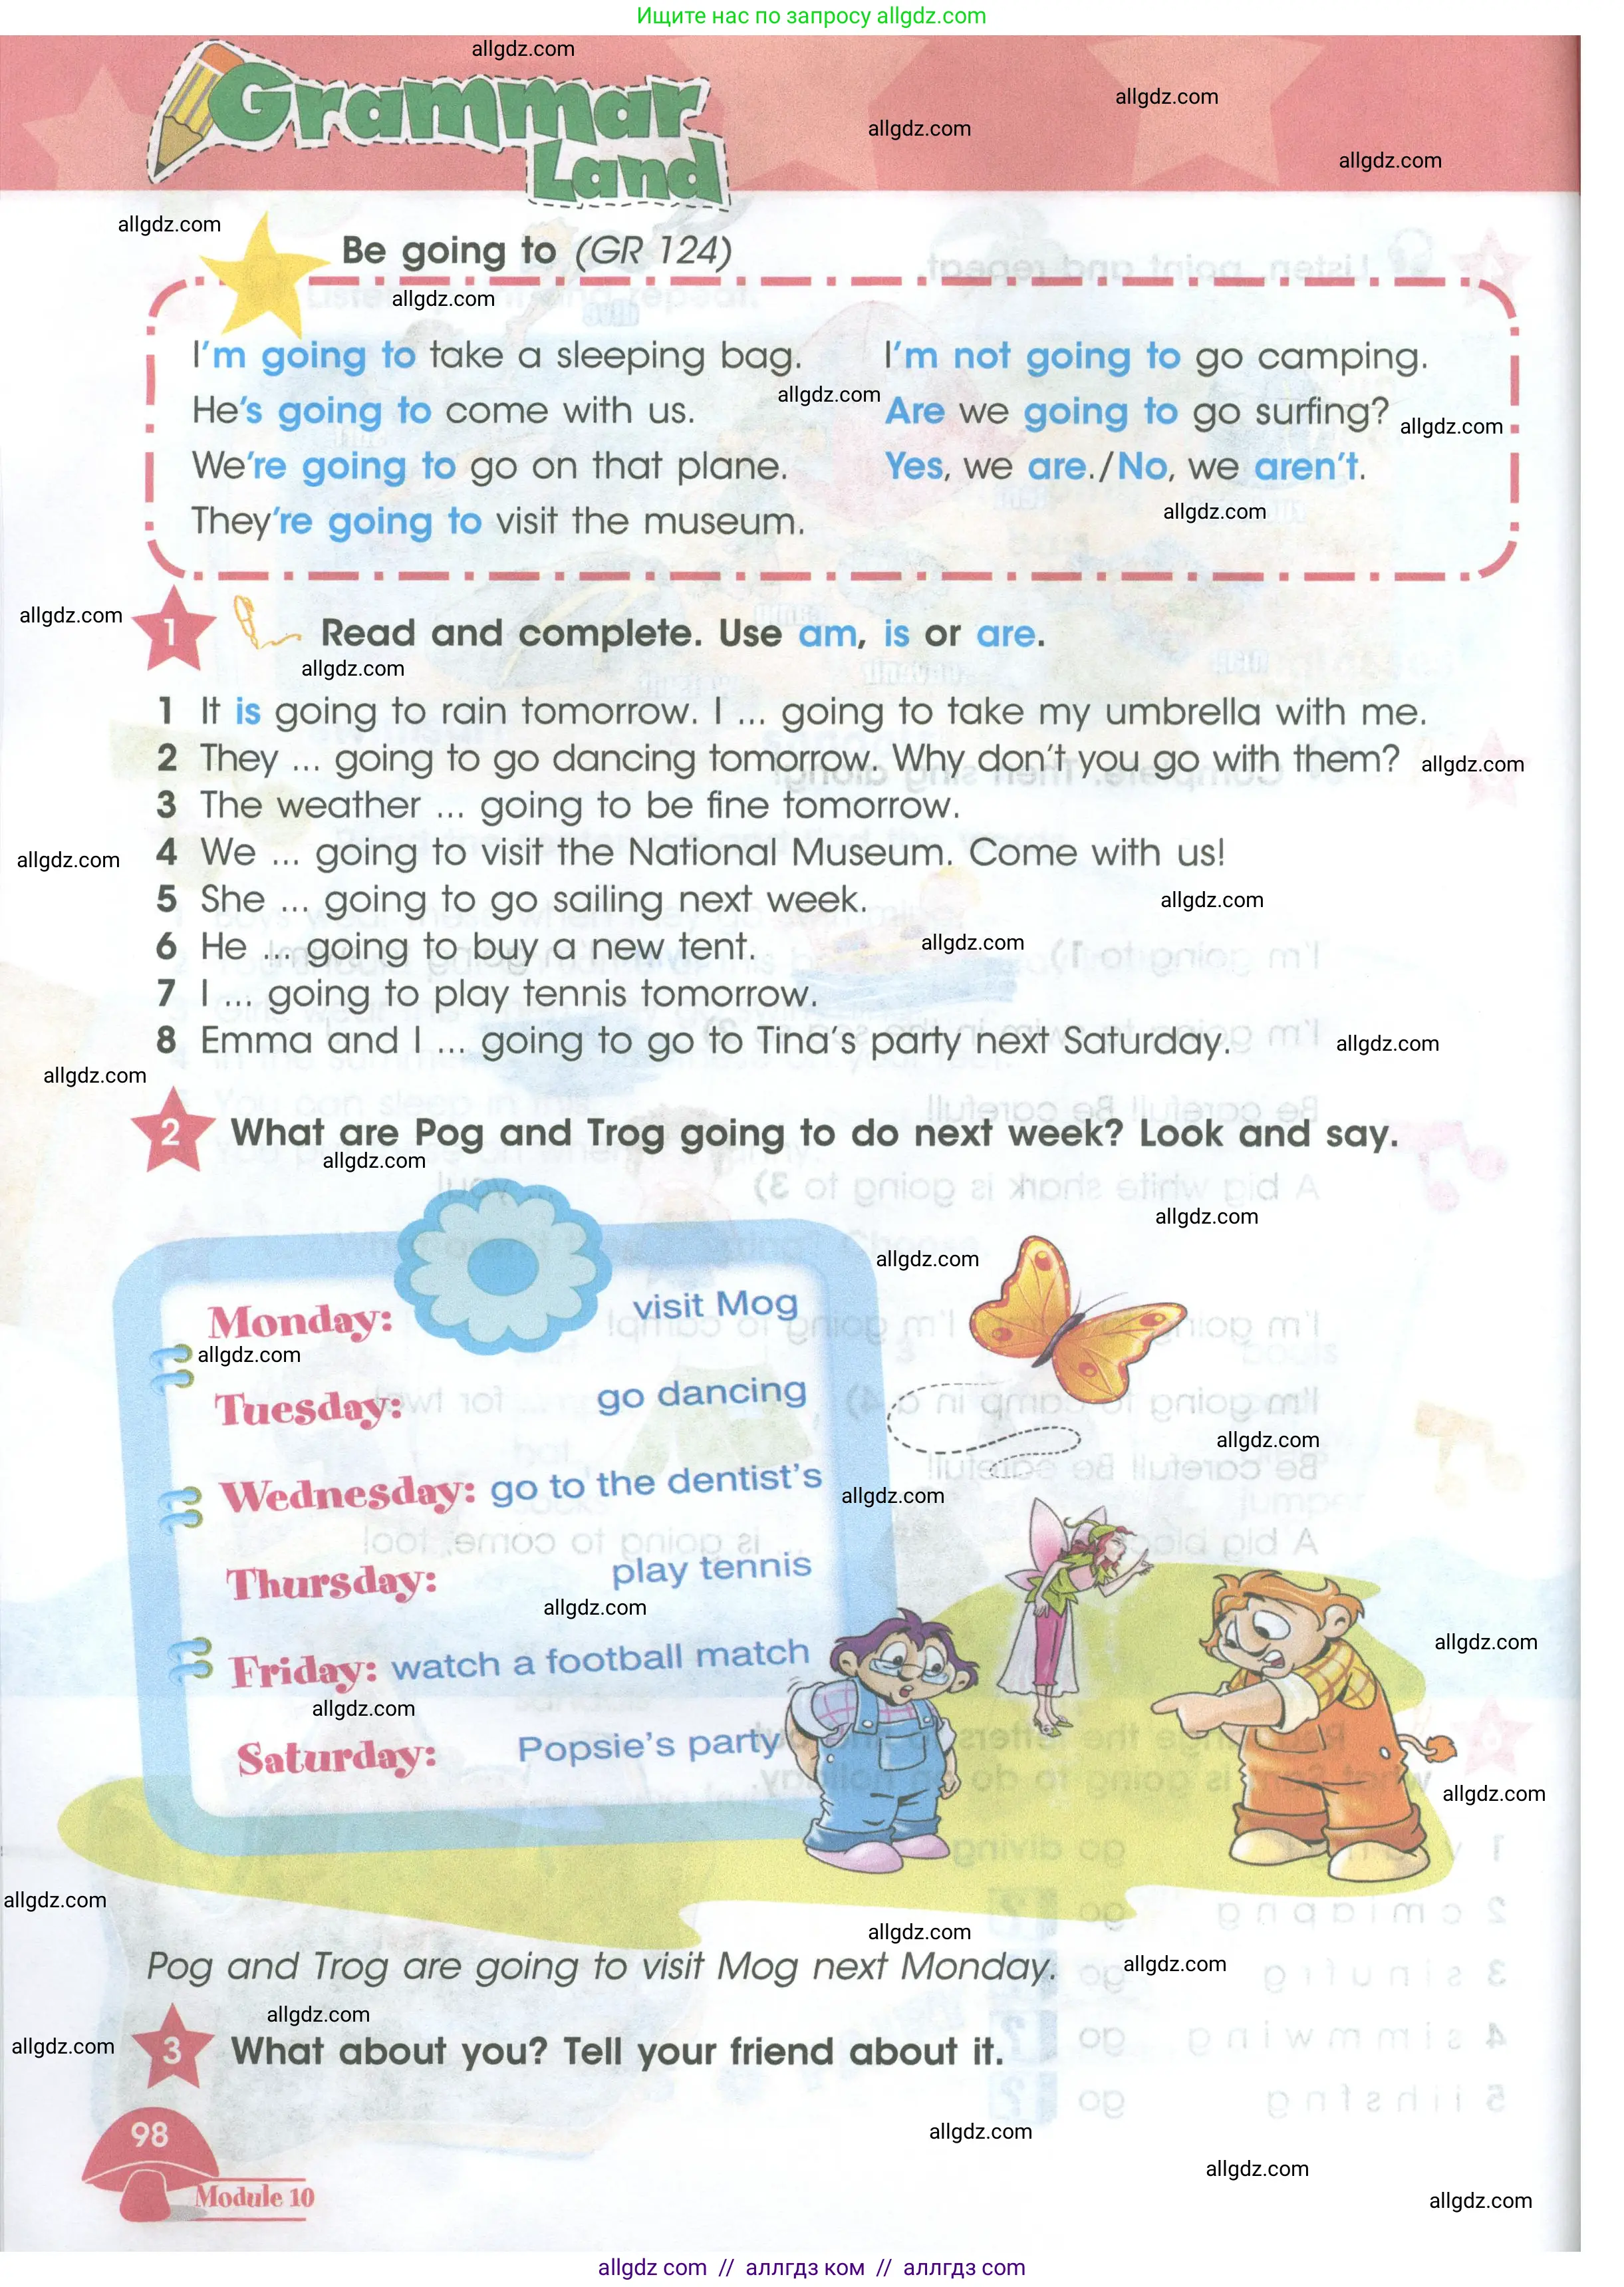 Ищите нас по запросу allgdz.com
allgdz.com
allgdz.com
allgdz.com
allgdz.com
Grammar
Land
allgdz.com
Be going to (GR 124)
allgdz.com
I'm going to take a sleeping bag.
I'm not going to go camping.
allgdz.com
He's going to come with us.
Are we going to go surfing?
allgdz.com
We're going to go on that plane.
Yes, we are./No, we aren't.
allgdz.com
They're going to visit the museum.
allgdz.com
1 Read and complete. Use am, is or are.
allgdz.com
1 It is going to rain tomorrow. I ... going to take my umbrella with me.
2 They ... going to go dancing tomorrow. Why don't you go with them?
allgdz.com
3 The weather ... going to be fine tomorrow.
allgdz.com
4 We ... going to visit the National Museum. Come with us!
5 She ... going to go sailing next week.
allgdz.com
6 He ... going to buy a new tent.
allgdz.com
7 I ... going to play tennis tomorrow.
8 Emma and I ... going to go to Tina's party next Saturday.
allgdz.com
allgdz.com
2 What are Pog and Trog going to do next week? Look and say.
allgdz.com
allgdz.com
allgdz.com
Monday: visit Mog
allgdz.com
Tuesday: go dancing
allgdz.com
Wednesday: go to the dentist's
allgdz.com
Thursday: play tennis
allgdz.com
allgdz.com
Friday: watch a football match
allgdz.com
Saturday: Popsie's party
allgdz.com
allgdz.com
allgdz.com
Pog and Trog are going to visit Mog next Monday.
allgdz.com
allgdz.com
allgdz.com
3 What about you? Tell your friend about it.
98
allgdz.com
allgdz.com
Module 10
allgdz.com
allgdz com // аллгдз ком // аллгдз com